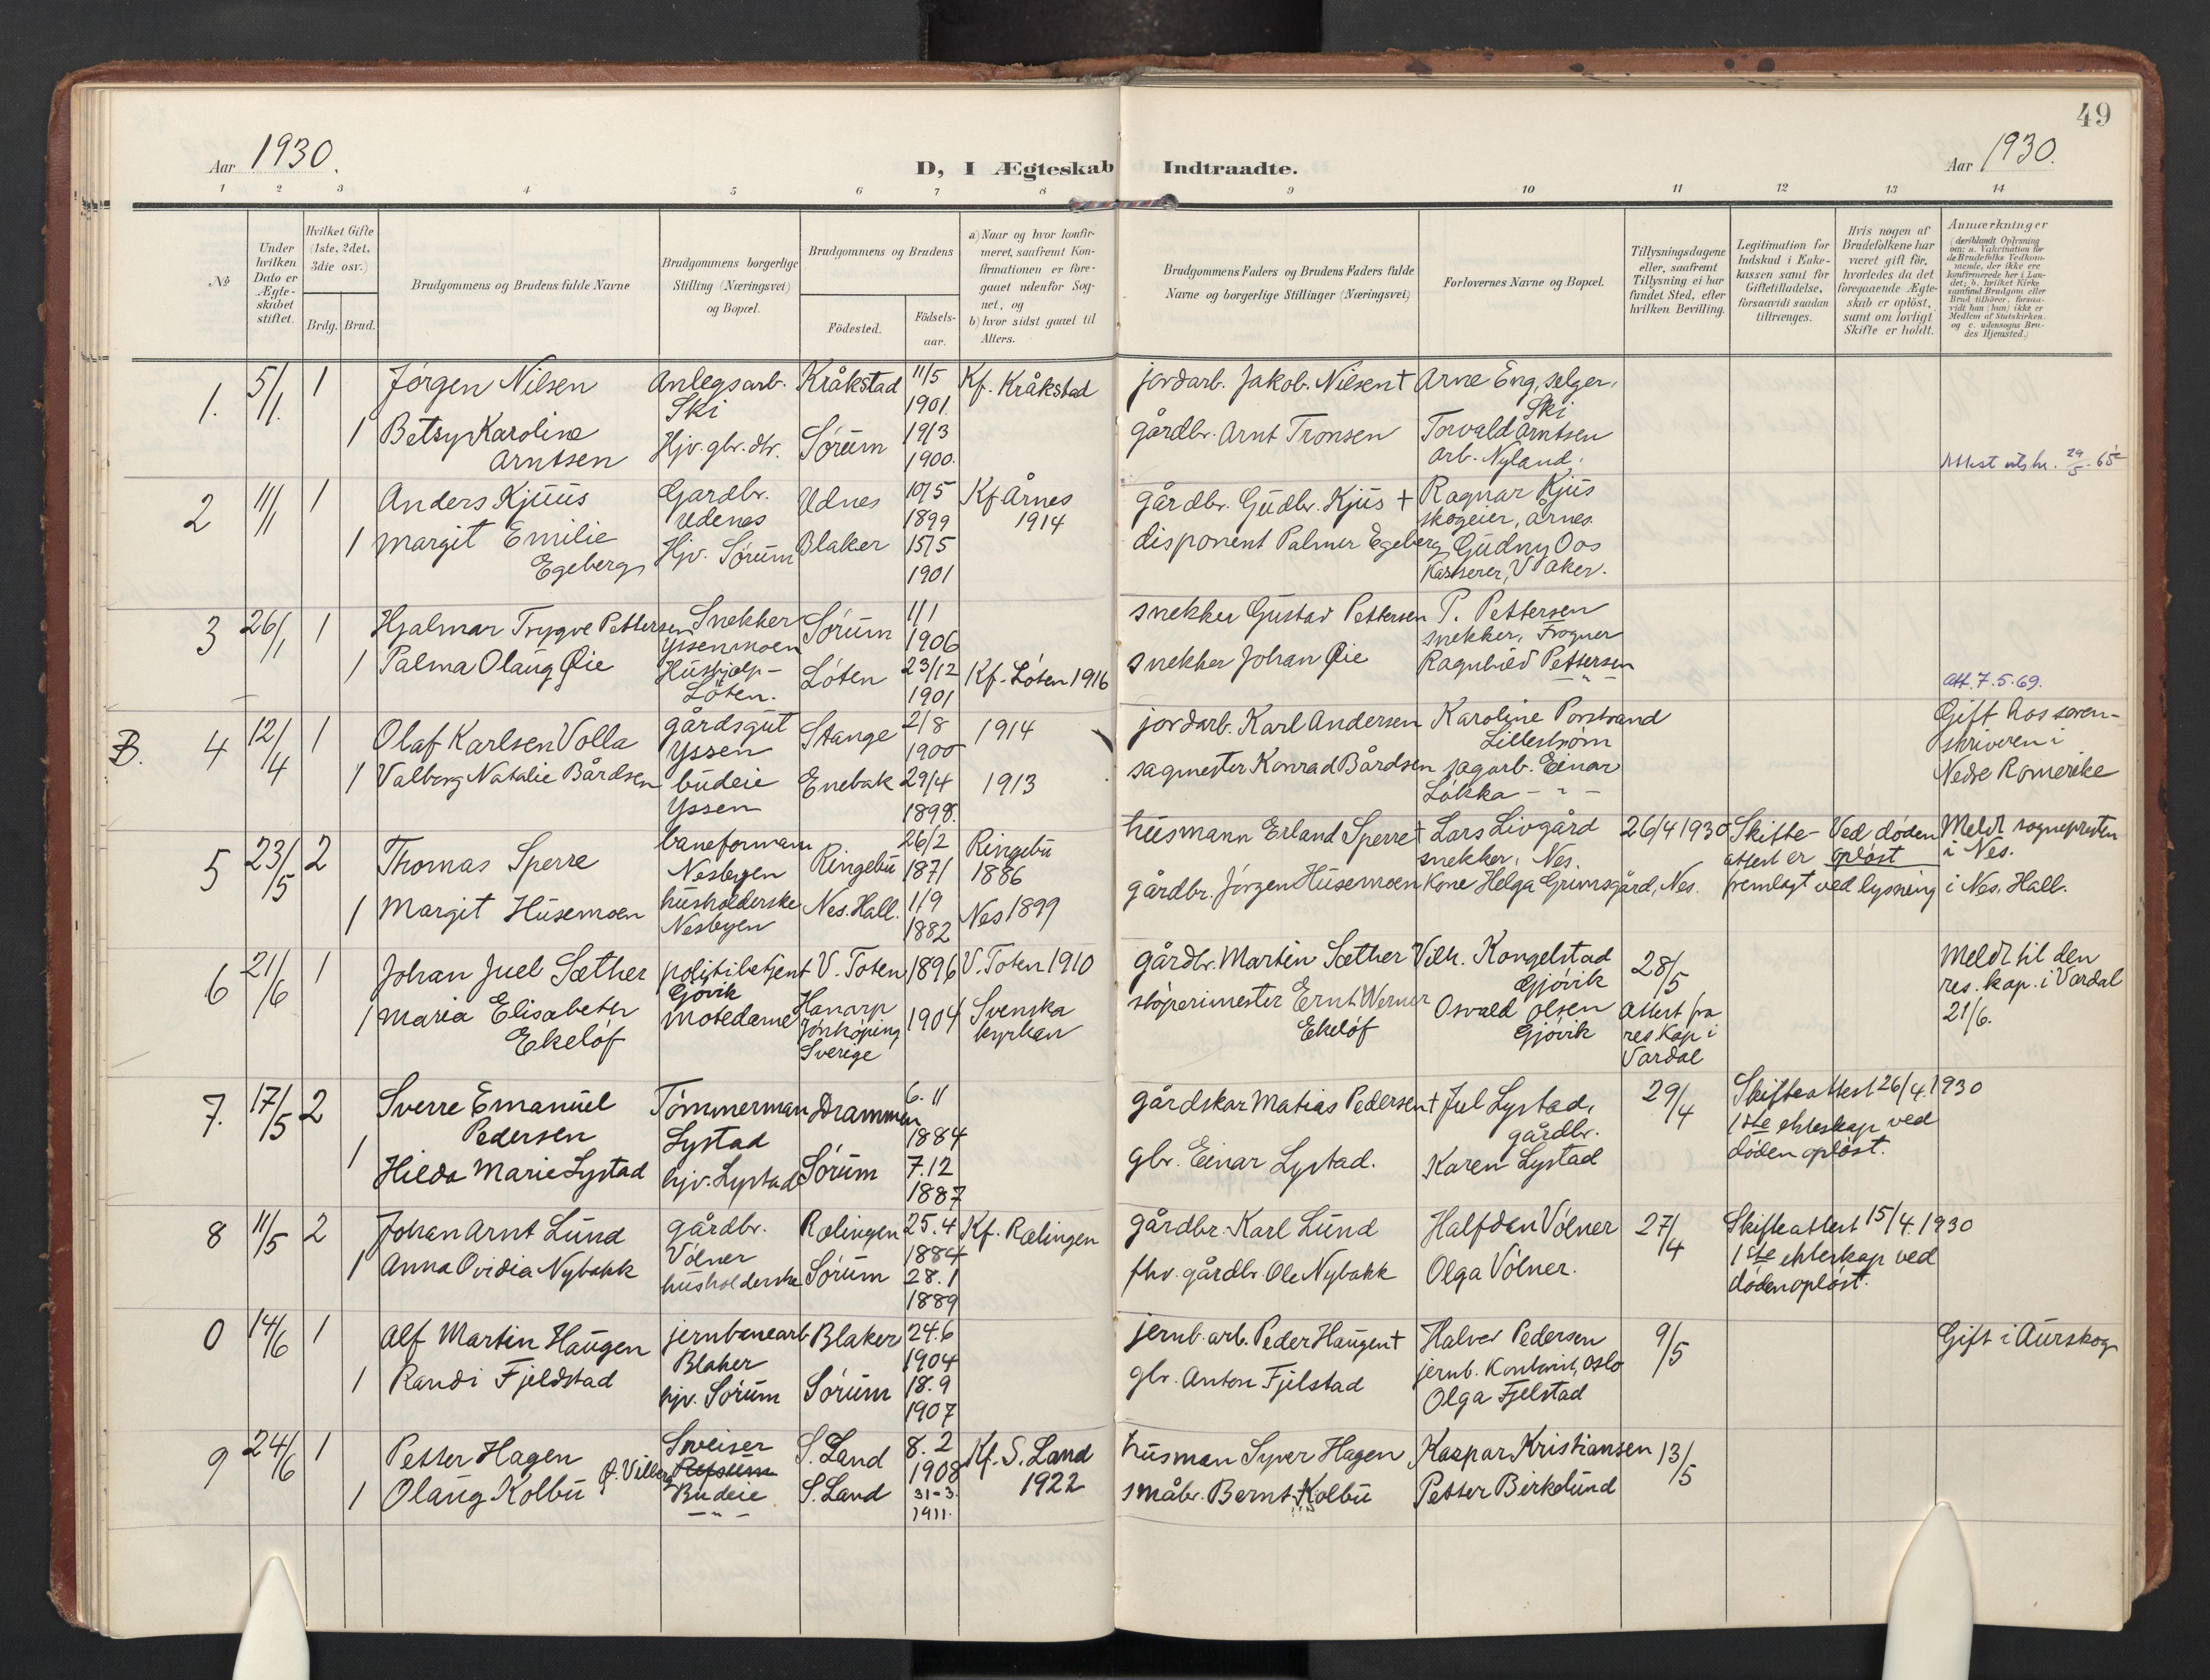 49
Aar 1930.
D, I Ægteskab Indtraadte.
Aar 1930.
1 2 3 4 5 6 7 8 9 10 11 12 13 14
No
Under hvilken Dato er Ægteskabet stiftet.
Hvilket Gifte (1ste, 2det, 3die osv.)
Brdg. Brud.
Brudgommens og Brudens fulde Navne
Brudgommens borgerlige Stilling (Næringsvei) og Bopæl.
Brudgommens og Brudens
Födested.
Födsels-aar.
a) Naar og hvor konfir-
meret, saafremt Kon-
firmationen er fore-
gaaet udenfor Sog-
net, og
b) hvor sidst gaaet til
Alters.
Brudgommens Faders og Brudens Faders fulde
Navne og borgerlige Stillinger (Næringsvei)
Forlovernes Navne og Bopæl.
Tillysningsdagene
eller, saafremt
Tillysning ei har
fundet Sted, efter
hvilken Bevilling.
Legitimation for
Indskud i Enke-
kassen samt for
Giftetilladelse,
forsaavidt saadan
tiltrænges.
Hvis nogen af
Brudefolkene har
været gift för,
hvorledes da det
foregaaende Ægte-
skab er oplöst,
samt om lovligt
Skifte er holdt.
Anmærkninger
(deriblandt Oplysning
om: a. Vakcination for
de Brudefolks Vedkom-
mende, der ikke ere
konfirmerede her i Lan-
det; b. hvilket Kirke-
samfund Brudgom eller
Brud tilhörer, forsaa-
vidt han (hun) ikke er
Medlem af Statskirken,
og c. udensogns Bru-
des Hjemsted.)
1. 5/1. 1 Jørgen Nilsen Anlegsarb. Ski Kråkstad 11/5 1901. Kf. Kråkstad jordarb. Jakob Nilsen + Arne Eng, selger, Ski
1 Betsy Karoline Arntsen Hjv. gbr. dtr. Sørum 19/3 1900. gårdbr. Arnt Tronsen Torvald Arntsen arb. Nyland. Attest utst. 29/5-65
2 11/1 1 Anders Kjuus Gardbr. Udenes Udnes 10/5 1899 Kf Årnes 1914 gårdbr. Gudbr. Kjus + Ragnar Kjus skogeier, Årnes.
1 Margit Emilie Egeberg Hjv. Sørum Blaker 15/5 1901 disponent Palmer Egeberg Gudny Oos Kasserer, V Aker.
3 26/1 1 Hjalmar Trygve Pettersen Snekker Yssenmoen Sørum 1/1 1906 snekker Gustav Pettersen P. Pettersen snekker, Frogner
1 Palma Olaug Øie Hushjelp- Løten. Løten 23/12 1901 Kf. Løten 1916 snekker Johan Øie Ragnhild Pettersen - " - Att. 7.5.69.
B. 4 12/4 1 Olaf Karlsen Volla gårdsgut Yssen Stange 2/8 1900 1914 jordarb. Karl Andersen Karoline Porstrand Lillestrøm Gift hos soren-
skriveren i
Nedre Romerike
1 Valborg Natalie Bårdsen budeie Yssen Enebak 29/4 1898. 1913 sagmester Konrad Bårdsen sagarb. Einar Løkka - " -
5 23/5 2 Thomas Sperre baneformann Nesbyen Ringebu 26/2 1871 Ringebu 1886 husmann Erland Sperre + Lars Livgård snekker, Nes. 26/4 1930 Skifte-attest er fremlagt ved lysning i Nes. Hall. Ved døden opløst Meldt sognepresten i Nes.
1 Margit Husemoen husholderske Nesbyen Nes. Hall. 1/9 1882 Nes 1899 gårdbr. Jørgen Husemoen Kone Helga Grimsgård, Nes.
6 21/6 1 Johan Juel Sæther politibetjent Gjøvik V. Toten 1896 V. Toten 1910 gårdbr. Martin Sæther Vilh. Kongelstad Gjøvik 28/5 Meldt til den
res. kap. i Vardal
21/6.
1 Maria Elisabeth Ekeløf Motedame Hanarp Jönköping Sverige 1904 Svenska kyrkan støperimester Ernt Werner Ekeløf Osvald Olsen Gjøvik Attest fra res. Kap i Vardal
7. 17/5 2 Sverre Emanuel Pedersen Tømmerman Lystad Drammen 6.11 1884 gårdskar Matias Pedersen + Jul Lystad, gårdbr. 29/4 Skifteattest 26/4.1930
1ste ekteskap ved
døden opløst.
1 Hilda Marie Lystad hjv. Lystad Sørum 7.12 1887 gbr. Einar Lystad. Karen Lystad
8 11/5 2 Johan Arnt Lund gårdbr. Vølner Rælingen 25.4 1884 Kf. Rælingen gårdbr. Karl Lund Halfdan Vølner 27/4 Skifteattest 15/4.1930
1ste ekteskap ved
døden opløst.
1 Anna Ovidia Nybakk husholderske Sørum 28.1 1889 fhv. gårdbr. Ole Nybakk Olga Vølner.
0 14/6 1 Alf Martin Haugen jernbanearb Blaker Blaker 24.6 1904 jernb. arb. Peder Haugen + Halvor Pedersen jernb. Kontorist, Oslo 9/5 Gift i Aurskog
1 Randi Fjeldstad hjv. Sørum Sørum 18.9 1907 gbr. Anton Fjelstad Olga Fjelstad
9 24/6 1 Petter Hagen Sveiser S. Land 8.2 1908 Kf. S. Land 1922 husman Syver Hagen Kaspar Kristiansen 13/5
1 Olaug Kolbu Budeie - " - S. Land 31-3. 1911. småbr. Bernt Kolbu Petter Birkelund